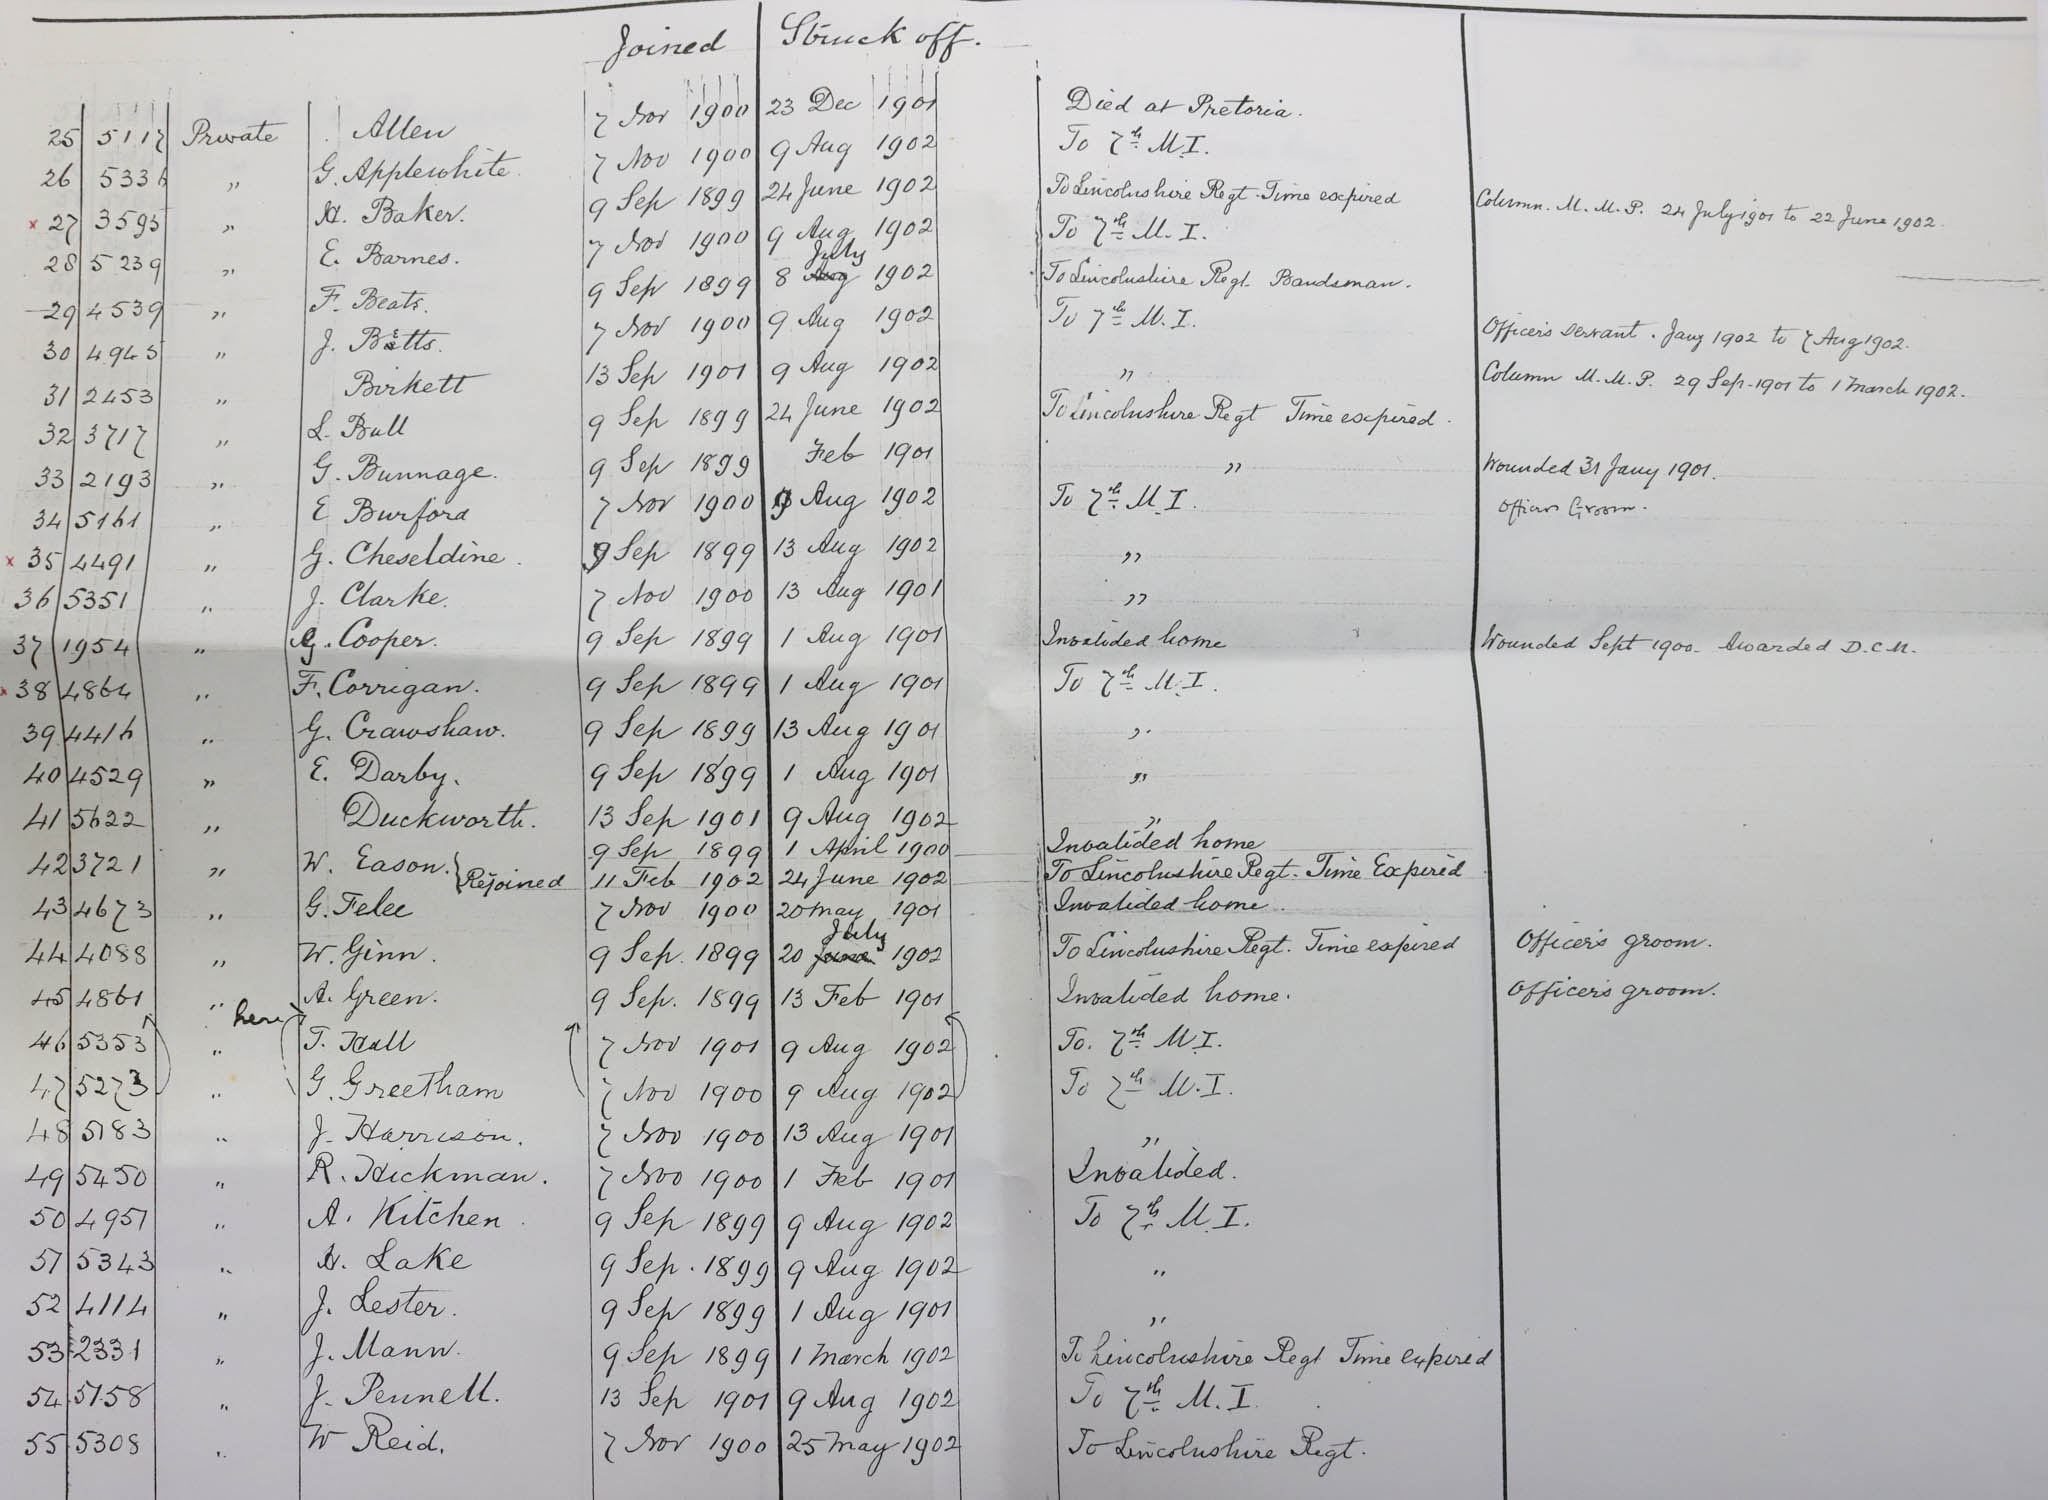 Joined Struck off.
25 5117 Private Allen 7 Nov 1900 23 Dec 1901 Died at Pretoria.
26 5336 " G. Applewhite. 7 Nov 1900 9 Aug 1902 To 7th M.I.
x 27 3595 " H. Baker. 9 Sep 1899 24 June 1902 To Lincolnshire Regt. Time expired Column. M.M.P. 24 July 1901 to 22 June 1902.
28 5239 " E. Barnes. 7 Nov 1900 9 Aug 1902 To 7th M.I.
29 4539 " F. Beats. 9 Sep 1899 8 Aug July 1902 To Lincolnshire Regt. Bandsman.
30 4945 " J. Betts. 7 Nov 1900 9 Aug 1902 To 7th M.I. Officer's Servant. Jany 1902 to 7 Aug 1902.
31 2453 " Birkett 13 Sep 1901 9 Aug 1902 " Column M.M.P. 29 Sep. 1901 to 1 March 1902.
32 3717 " L. Bull 9 Sep 1899 24 June 1902 To Lincolnshire Regt Time expired.
33 2193 " G. Bunnage. 9 Sep 1899 Feb 1901 " Wounded 31 Jany 1901.
34 5161 " E Burford 7 Nov 1900 9 Aug 1902 To 7th M.I. Officers Groom.
x 35 4491 " G. Cheseldine. 9 Sep 1899 13 Aug 1902 "
36 5351 " J. Clarke. 7 Nov 1900 13 Aug 1901 "
37 1954 " G. Cooper. 9 Sep 1899 1 Aug 1901 Invalided home Wounded Sept 1900. Awarded D.C.M.
x 38 4864 " F. Corrigan. 9 Sep 1899 1 Aug 1901 To 7th M.I.
39 4416 " G. Crawshaw. 9 Sep 1899 13 Aug 1901 "
40 4529 " E. Darby. 9 Sep 1899 1 Aug 1901 "
41 5622 " Duckworth. 13 Sep 1901 9 Aug 1902 "
42 3721 " W. Eason. 9 Sep 1899 1 April 1900 Invalided home
Rejoined 11 Feb 1902 24 June 1902 To Lincolnshire Regt. Time Expired
43 4673 " G. Felee 7 Nov 1900 20 May 1901 Invalided home.
44 4088 " W. Ginn. 9 Sep. 1899 20 June July 1902 To Lincolnshire Regt. Time expired Officer's groom.
45 4861 " A. Green. 9 Sep. 1899 13 Feb 1901 Invalided home. Officer's groom.
here
46 5353 " T. Hall 7 Nov 1901 9 Aug 1902 To. 7th M.I.
47 5273 " G. Greetham 7 Nov 1900 9 Aug 1902 To 7th M.I.
48 5183 " J. Harrison. 7 Nov 1900 13 Aug 1901 "
49 5450 " R. Hickman. 7 Nov 1900 1 Feb 1901 Invalided.
50 4951 " A. Kitchen. 9 Sep 1899 9 Aug 1902 To 7th M.I.
51 5343 " H. Lake 9 Sep. 1899 9 Aug 1902 "
52 4114 " J. Lester. 9 Sep 1899 1 Aug 1901 "
53 2331 " J. Mann. 9 Sep 1899 1 March 1902 To Lincolnshire Regt Time expired
54 5158 " J. Pennell. 13 Sep 1901 9 Aug 1902 To 7th M.I.
55 5308 " W Reid. 7 Nov 1900 25 May 1902 To Lincolnshire Regt.